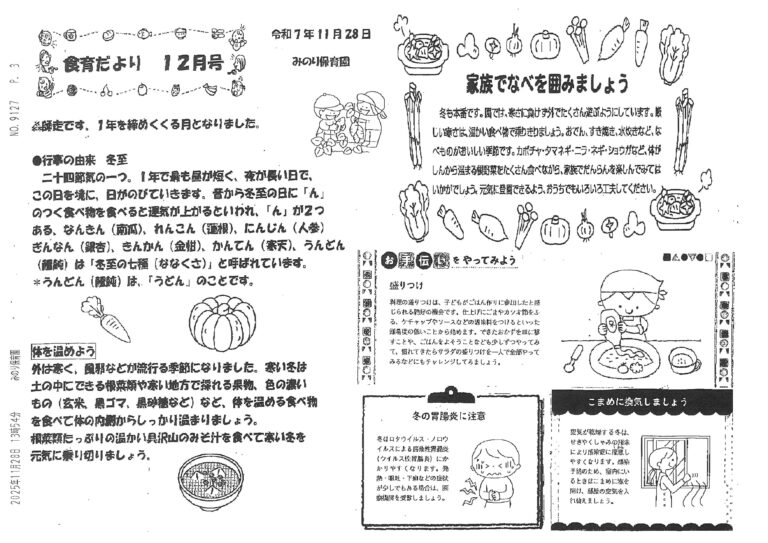 NO. 9127 P. 3
みのり保育園
2025年11月28日 13時54分
食育だより 12月号
令和7年11月28日
みのり保育園
師走です。1年を締めくくる月となりました。
●行事の由来 冬至
二十四節気の一つ。1年で最も昼が短く、夜が長い日で、
この日を境に、日がのびていきます。昔から冬至の日に「ん」
のつく食べ物を食べると運気が上がるといわれ、「ん」が2つ
ある、なんきん(南瓜)、れんこん(蓮根)、にんじん(人参)
ぎんなん(銀杏)、きんかん(金柑)、かんてん(寒天)、うんどん
(饂飩)は「冬至の七種(ななくさ)」と呼ばれています。
*うんどん(饂飩)は、「うどん」のことです。
体を温めよう
外は寒く、風邪などが流行る季節になりました。寒い冬は
土の中にできる根菜類や寒い地方で採れる果物、色の濃い
もの(玄米、黒ゴマ、黒砂糖など)など、体を温める食べ物
を食べて体の内側からしっかり温まりましょう。
根菜類たっぷりの温かい具沢山のみそ汁を食べて寒い冬を
元気に乗り切りましょう。
家族でなべを囲みましょう
冬も本番です。園では、寒さに負けず外でたくさん遊ぶようにしています。厳
しい寒さは、温かい食べ物で乗りきりましょう。おでん、すき焼き、水炊きなど、な
べものがおいしい季節です。カボチャ・タマネギ・ニラ・ネギ・ショウガなど、体が
しんから温まる根野菜をたくさん食べながら、家族でだんらんを楽しんでみては
いかがでしょう。元気に登園できるよう、おうちでもいろいろ工夫してください。
お手伝いをやってみよう
盛りつけ
料理の盛りつけは、子どもがごはん作りに参加したと感
じられる絶好の機会です。仕上げにごまやカツオ節をふ
る、ケチャップやソースなどの調味料をつけるといった
難易度の低いことから始めます。できたおかずを皿に移
すことや、ごはんをよそうことなども少しずつやってみ
て、慣れてきたらサラダの盛りつけを一人で全部やって
みるなどにもチャレンジしてみましょう。
冬の胃腸炎に注意
冬はロタウイルス・ノロウ
イルスによる感染性胃腸炎
(ウイルス性胃腸炎)にか
かりやすくなります。発
熱・嘔吐・下痢などの症状
が少しでもある場合は、医
療機関を受診しましょう。
こまめに換気しましょう
空気が乾燥する冬は、
せきやくしゃみの飛沫
により感染症に感染し
やすくなります。感染
予防のため、室内にい
るときはこまめに窓を
開け、部屋の空気を入
れ替えましょう。